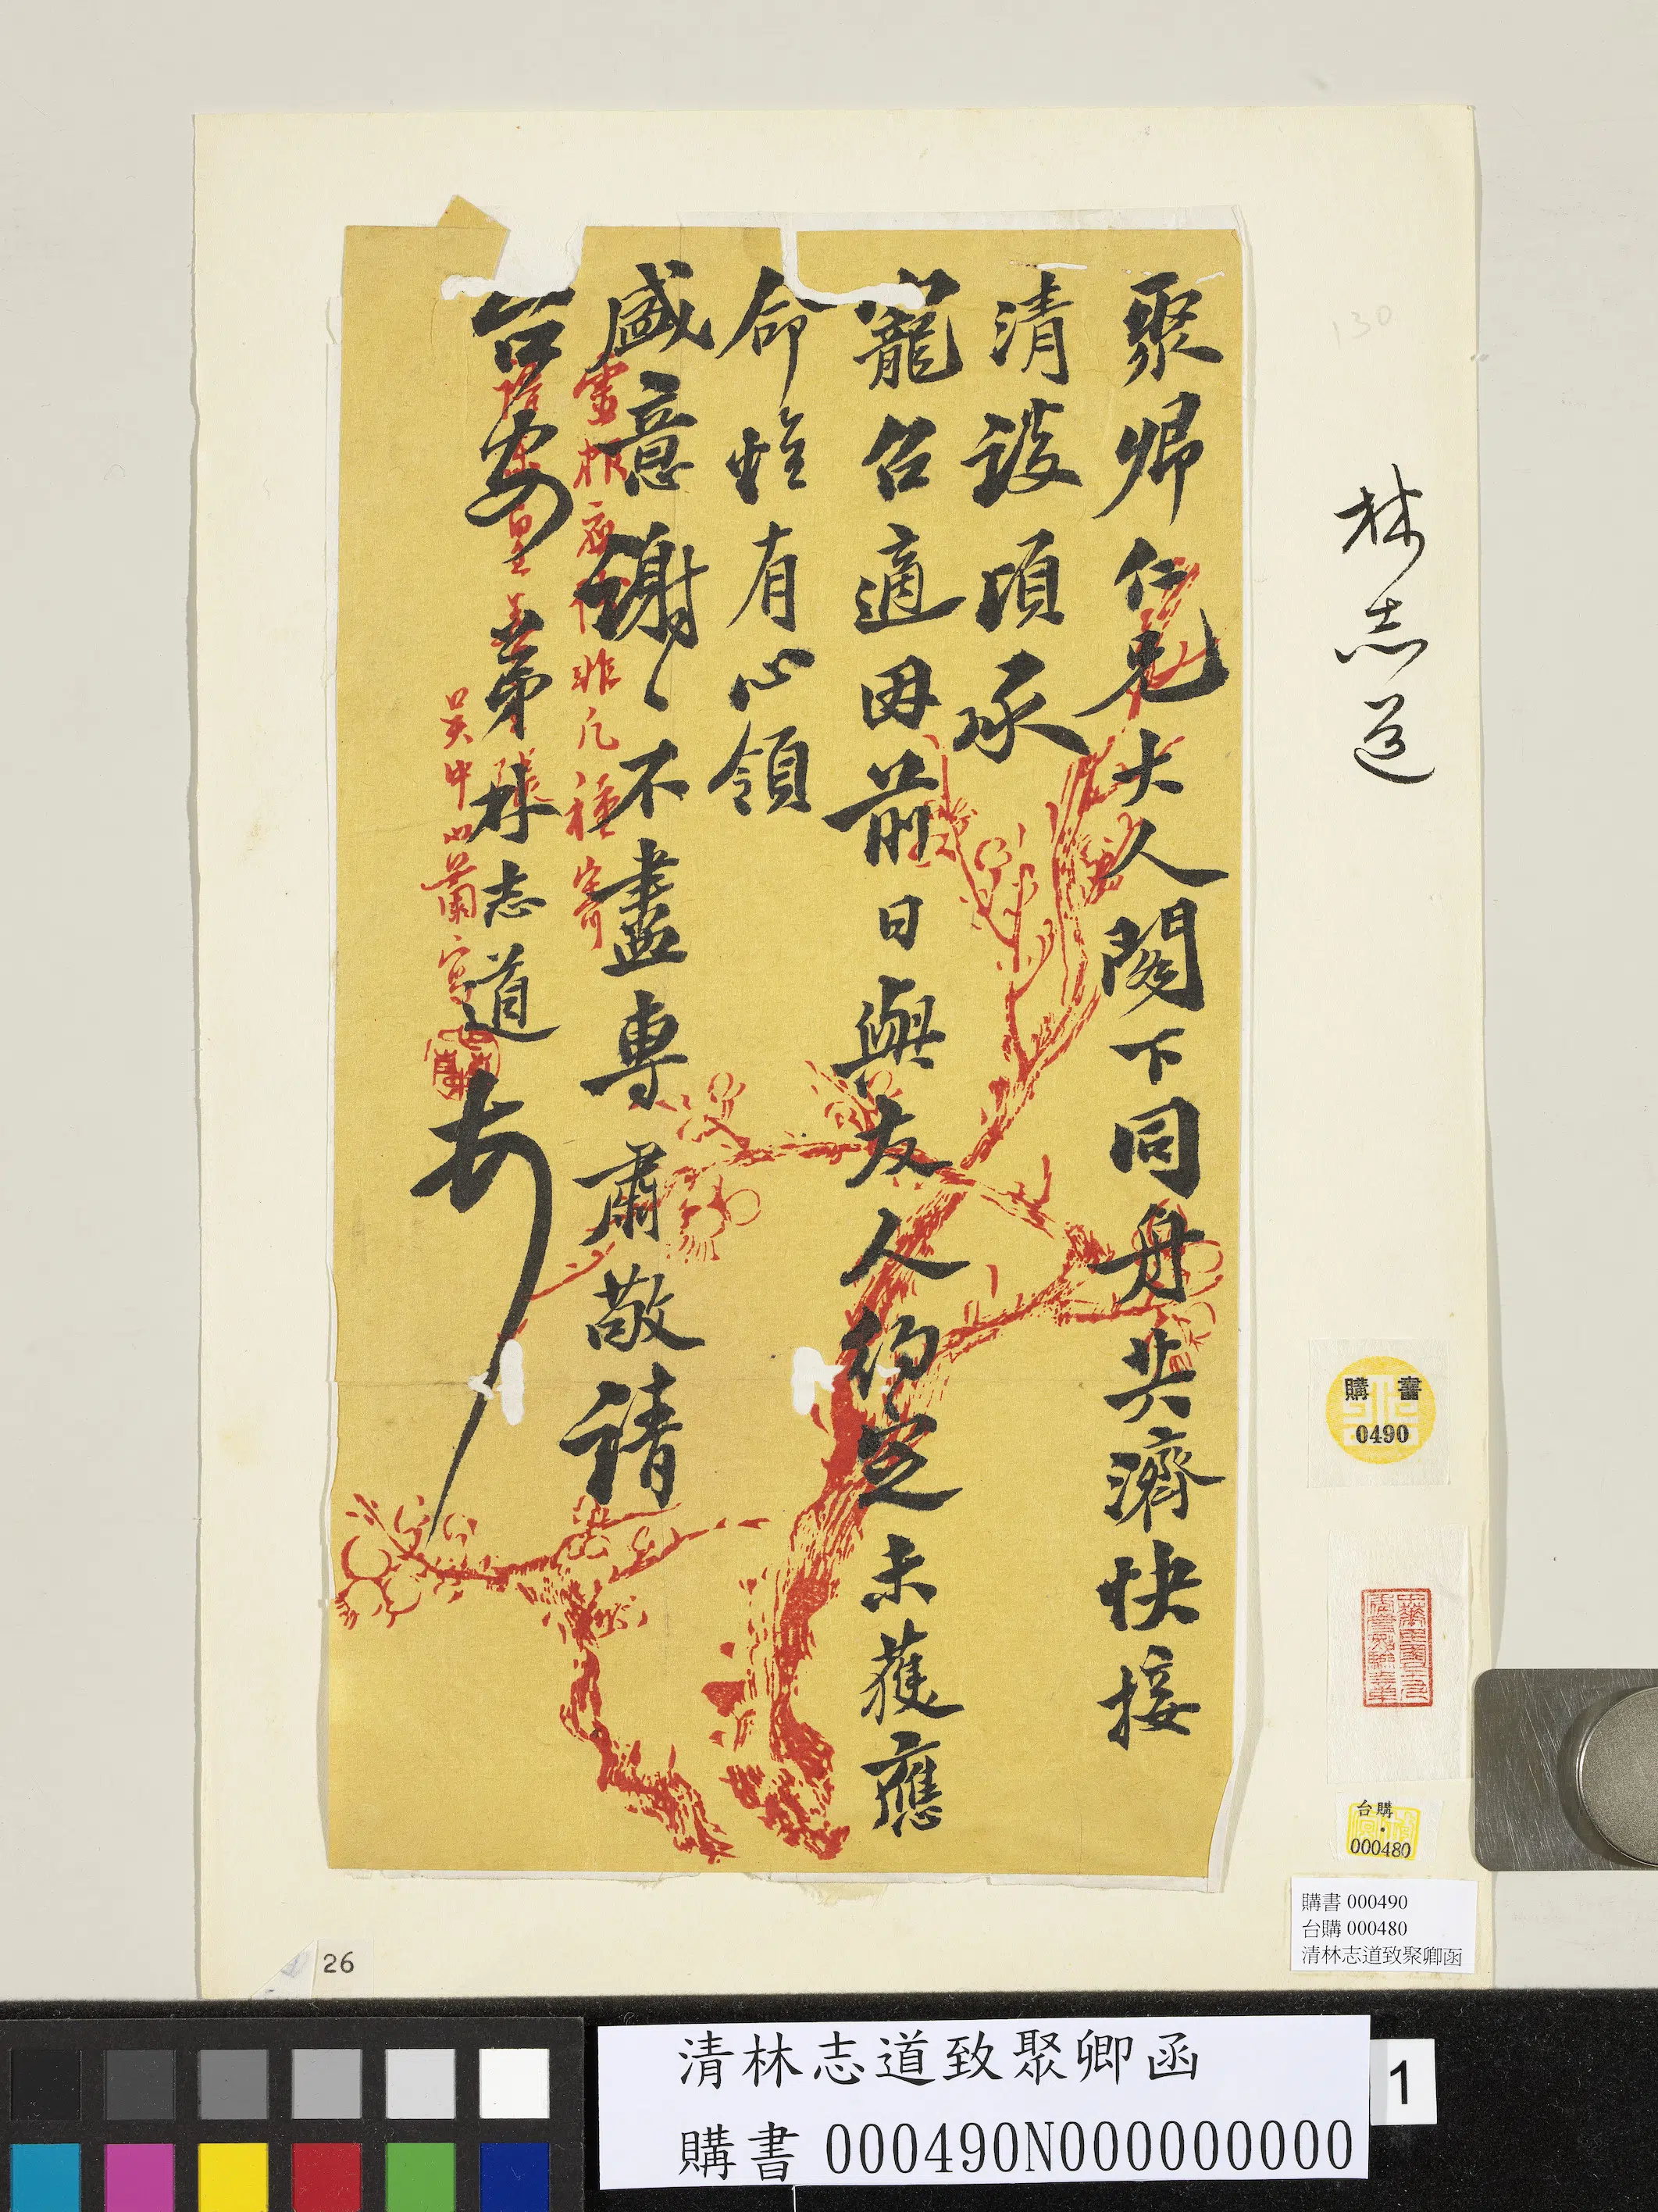 聚卿仁兄大人閣下同舟共濟快接
清談頃承
寵召適因前日與友人約定未獲應
命惟有心領
盛意謝〻不盡專肅敬請
台安
弟林志道頓
靈根 非凡種寄
吳中 蕭
林志道
130
購書
0490
台購
000480
購書 000490
台購 000480
清林志道致聚卿函
26
清林志道致聚卿函
購書 000490N000000000
1